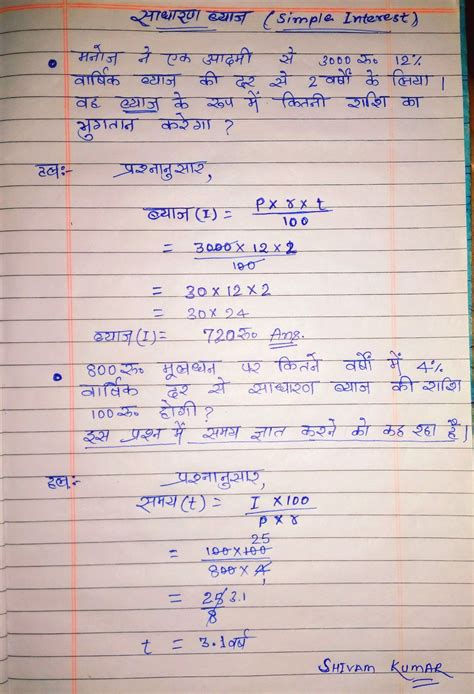 साधारण ब्याज (Simple Interest)
मनोज ने एक आदमी से 3000 रू० 12%
वार्षिक ब्याज की दर से 2 वर्षों के लिया।
वह ब्याज के रूप में कितनी राशि का
भुगतान करेगा ?
हलः- प्रश्नानुसार,
ब्याज (I) = P × r × t / 100
= 3000 × 12 × 2 / 100
= 30 × 12 × 2
= 30 × 24
ब्याज (I) = 720 रू० Ans.
800 रू० मूलधन पर कितने वर्षों में 4%
वार्षिक दर से साधारण ब्याज की राशि
100 रू० होगी ?
इस प्रश्न में समय ज्ञात करने को कह रहा है।
हलः- प्रश्नानुसार,
समय (t) = I × 100 / P × r
25
= 100 × 100 / 800 × 4 1
= 25 3.1 / 8
t = 3.1 वर्ष
SHIVAM KUMAR